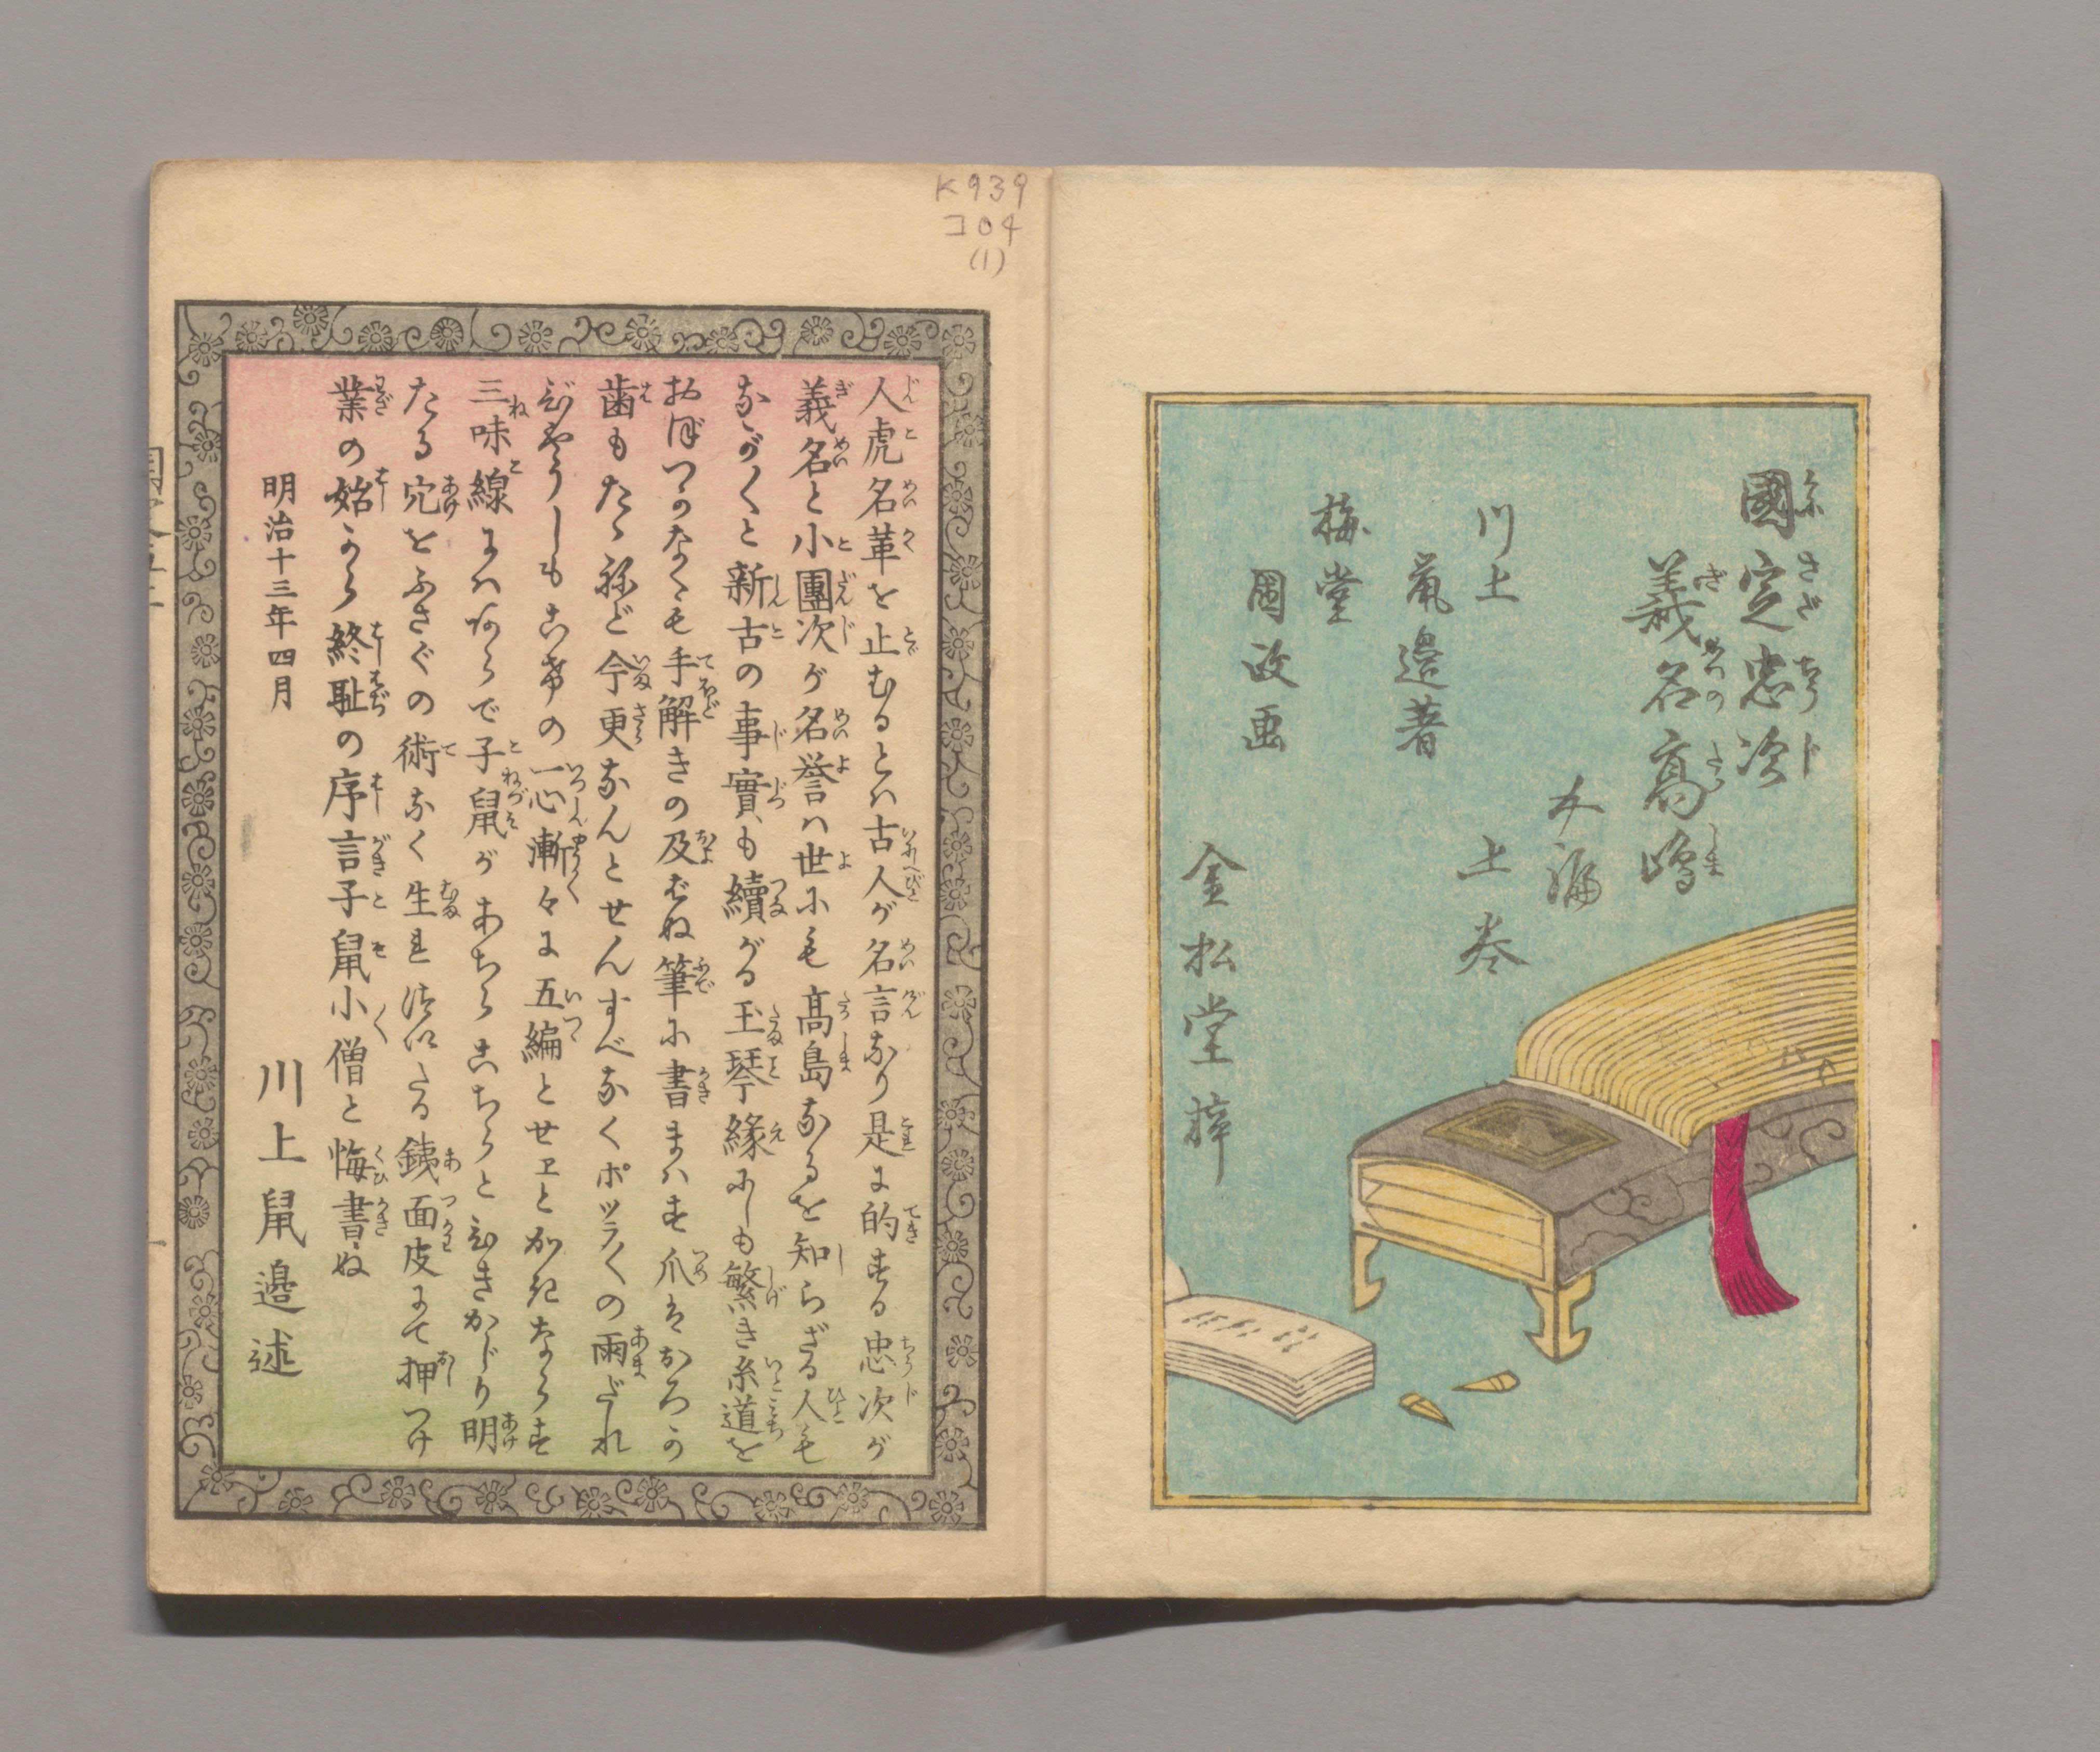 國定忠次
義名高嶋
五編
上巻
川上
鼠邉著
梅堂
國政画
金松堂梓
K939
コ04
(1)
人虎名革を止むるとハ古人が名言なり是に的する忠次が
義名と小團次が名誉ハ世にも髙島なるを知らざる人も
ながくと新古の事實も續がる玉琴緣にしも繁き糸道を
おぼつかなくも手解きの及ばぬ筆に書まハす爪はおろか
歯もたゝねど今更なんとせんすべなくポツ〳〵の雨だれ
びやうしも の一心漸々に五編とせエとか なら
三味線にハあらで子鼠があちらこちらとひきかじり明
たる穴をふさぐの術なく生 たる銕面皮にて押つけ
業の始から終耻の序言子鼠小僧と悔書ぬ
明治十三年四月
川上鼠邉述